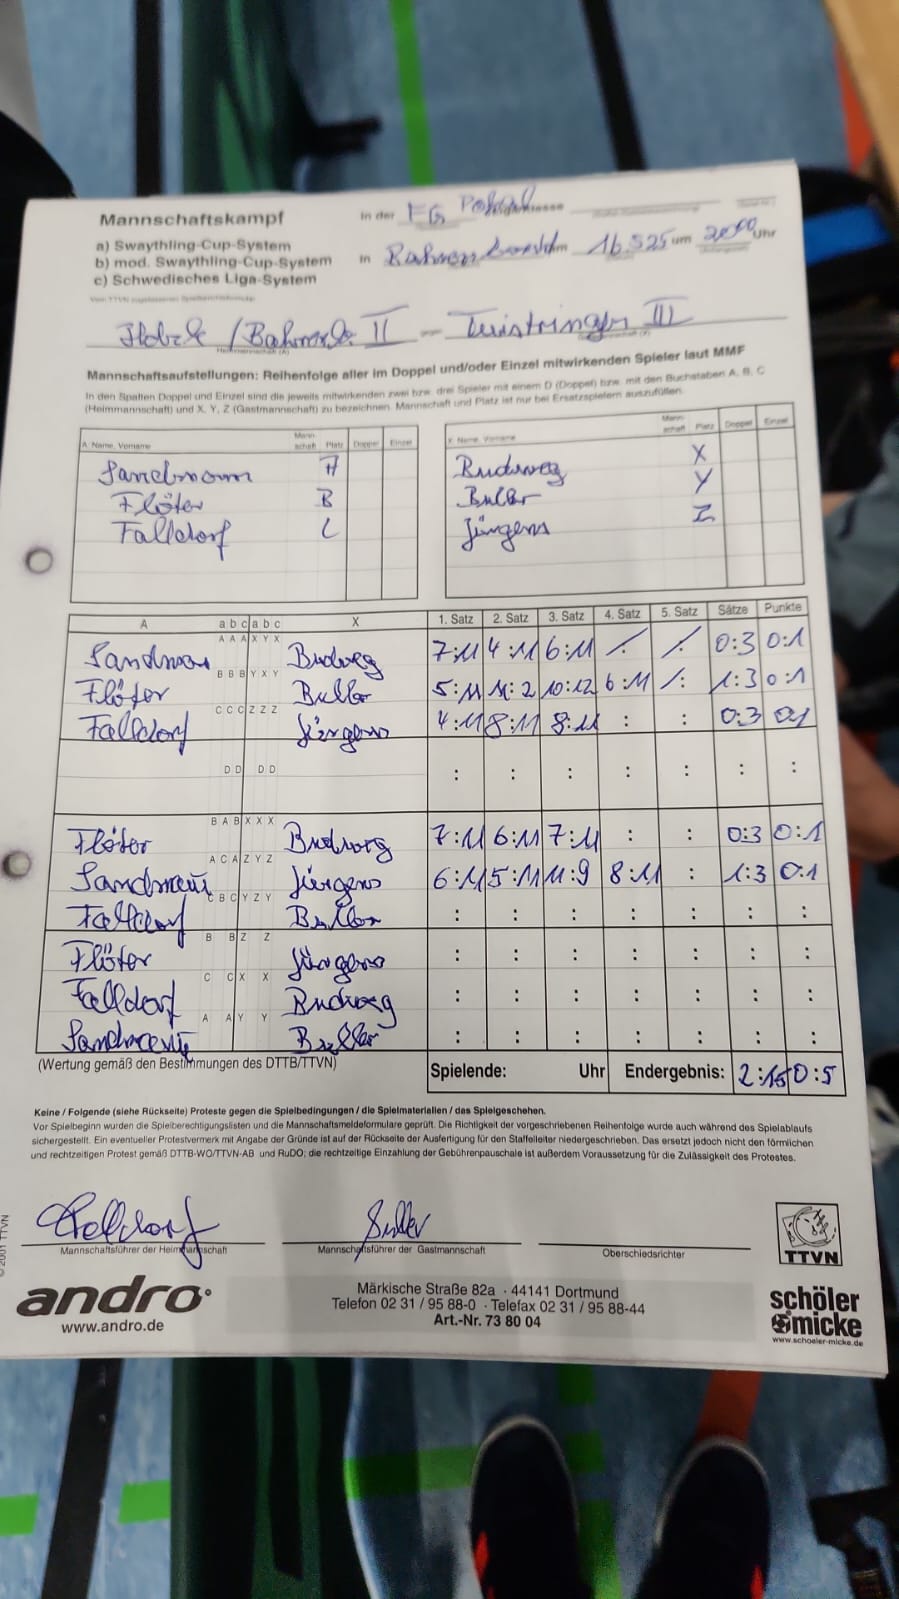 Mannschaftskampf in der FG Pokal
a) Swaythling-Cup-System
b) mod. Swaythling-Cup-System in am 16.5.25 um 20⁰⁰ Uhr
c) Schwedisches Liga-System
/ II – III
Mannschaftsaufstellungen: Reihenfolge aller im Doppel und/oder Einzel mitwirkenden Spieler laut MMF
In den Spalten Doppel und Einzel sind die jeweils mitwirkenden zwei bzw. drei Spieler mit einem D (Doppel) bzw. mit den Buchstaben A, B, C
(Heimmannschaft) und X, Y, Z (Gastmannschaft) zu bezeichnen. Mannschaft und Platz ist nur bei Ersatzspielern auszufüllen.
A Name, Vorname Mann schaft Platz Doppel Einzel X Name, Vorname Mann schaft Platz Doppel Einzel
Sandmann A Budweg X
Flöter B Buller Y
Falldorf C Jürgens Z
A a b c a b c X 1. Satz 2. Satz 3. Satz 4. Satz 5. Satz Sätze Punkte
A A A X Y X
Sandman Budweg 7:11 4:11 6:11 : : 0:3 0:1
B B B Y X Y
Flöter Buller 5:11 11:2 10:12 6:11 : 1:3 0:1
C C C Z Z Z
Falldorf Jürgens 4:11 8:11 8:11 : : 0:3 0:1
D D D D : : : : : : :
B A B X X X
Flöter Budweg 7:11 6:11 7:11 : : 0:3 0:1
A C A Z Y Z
Sandmann Jürgens 6:11 5:11 11:9 8:11 : 1:3 0:1
C B C Y Z Y
Falldorf Buller : : : : : : :
B B Z Z
Flöter Jürgens : : : : : : :
C C X X
Falldorf Budweg : : : : : : :
A A Y Y
Sandmann Buller : : : : : : :
(Wertung gemäß den Bestimmungen des DTTB/TTVN) Spielende: Uhr Endergebnis: 2:15 0:5
Keine / Folgende (siehe Rückseite) Proteste gegen die Spielbedingungen / die Spielmaterialien / das Spielgeschehen.
Vor Spielbeginn wurden die Spielberechtigungslisten und die Mannschaftsmeldeformulare geprüft. Die Richtigkeit der vorgeschriebenen Reihenfolge wurde auch während des Spielablaufs
sichergestellt. Ein eventueller Protestvermerk mit Angabe der Gründe ist auf der Rückseite der Ausfertigung für den Staffelleiter niedergeschrieben. Das ersetzt jedoch nicht den förmlichen
und rechtzeitigen Protest gemäß DTTB-WO/TTVN-AB und RuDO; die rechtzeitige Einzahlung der Gebührenpauschale ist außerdem Voraussetzung für die Zulässigkeit des Protestes.
Falldorf Buller
Mannschaftsführer der Heimmannschaft Mannschaftsführer der Gastmannschaft Oberschiedsrichter
TTVN
© 2001 TTVN
andro
www.andro.de
Märkische Straße 82a · 44141 Dortmund
Telefon 02 31 / 95 88-0 · Telefax 02 31 / 95 88-44
Art.-Nr. 73 80 04
schöler
micke
www.schoeler-micke.de